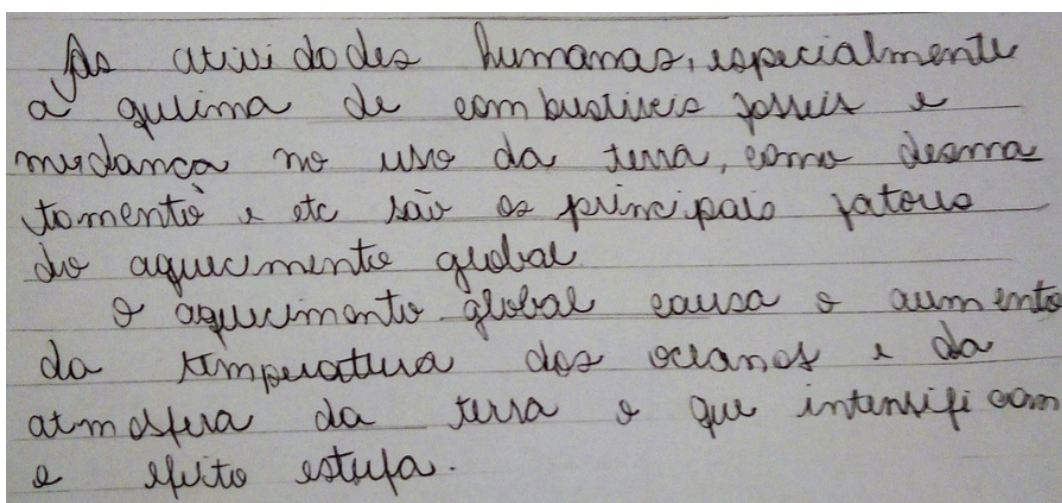 As atividodes humanas, especialmente
a queima de combustiveis fosseis e
mudanca no uso da terra, como desma
tamento e etc são os principais fatores
do aquecimento gudbal
o aquecimento global causa o aumento
da temperatura dos oceanos e da
atmosfera da terra o que intensificam
o efeito estufa.